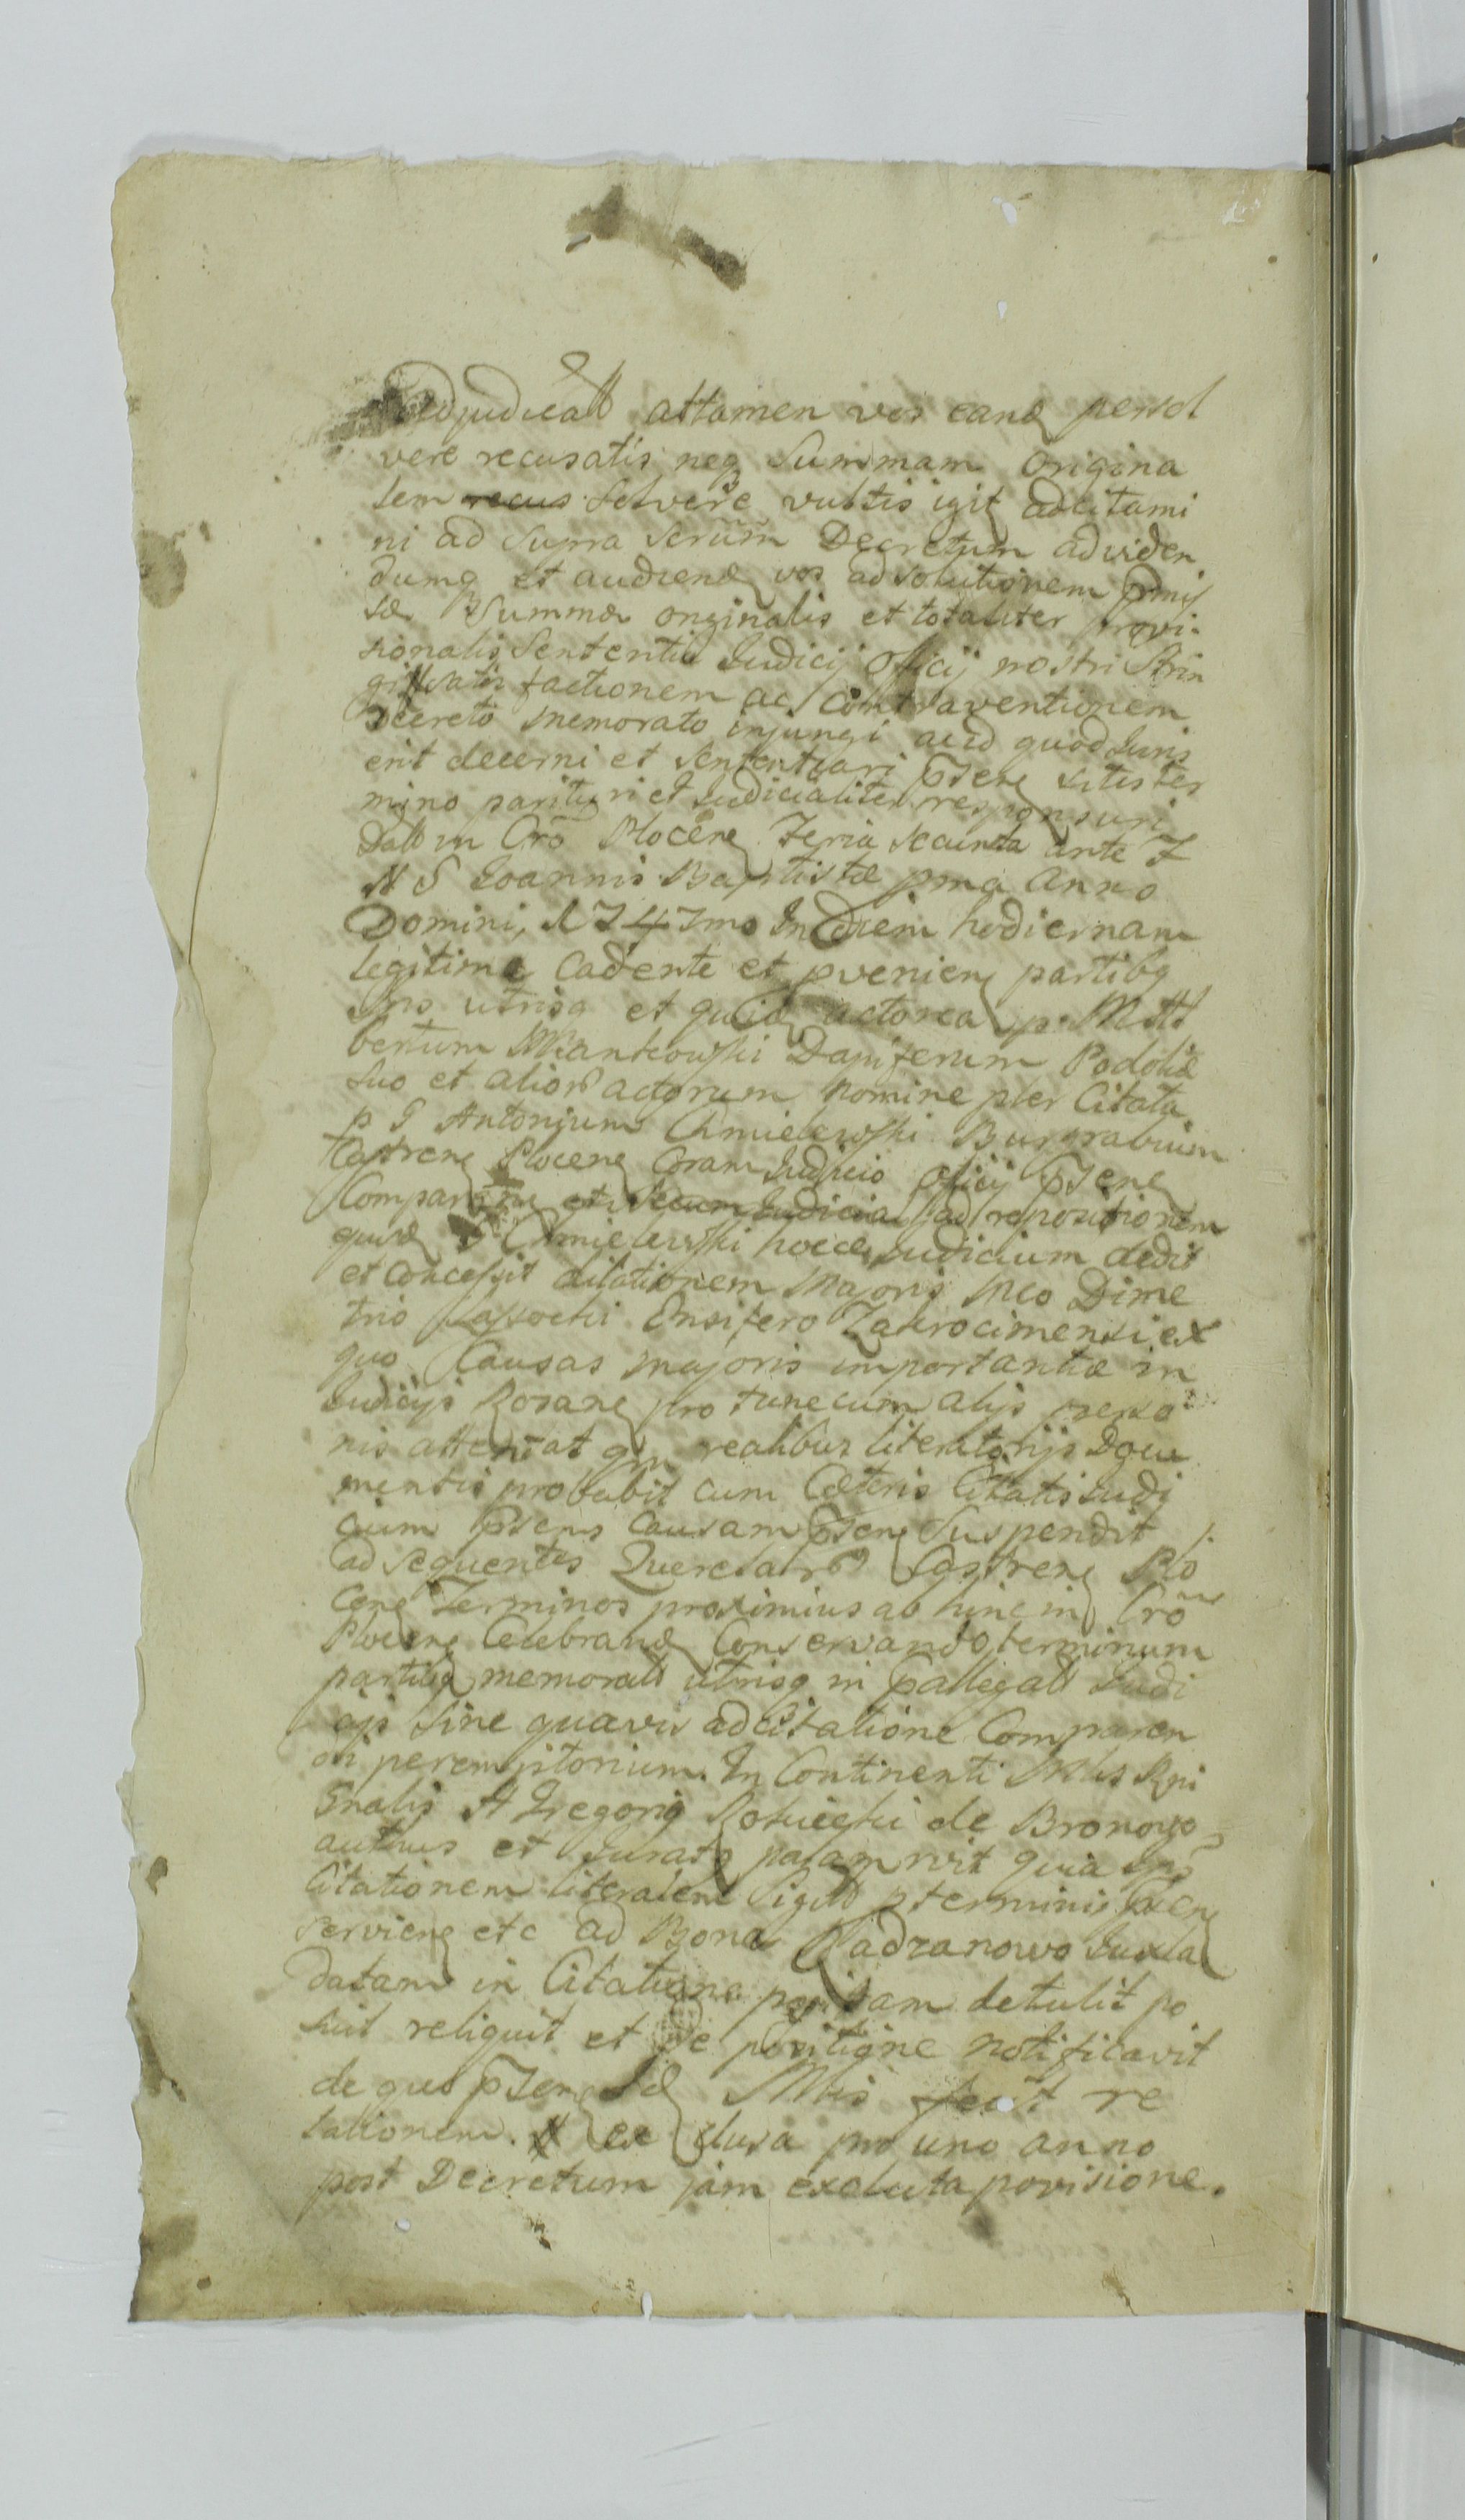 Adjudicatt attamen vos eand persol
vere recusatis neq Summam Origina
lem recus Solvere vultis igit adcitami
ni ad Supra Scrum Decretum ad viden
dumq et audiend vos ad solutionem pmis
sæ Summæ originalis et totaliter provi
sionalis Sententia Judicij Officij nostri
factionem ac Contraventionem
Decreto memorato injungi aliud quod Juris
erit decerni et sententiari pten sitis ter
mino parituri et Judicialiter responsuri
Datt in Cro Plocen Feria secunda ante F
N S Joannis Baptistæ pma Anno
Domini, 1747mo In diem hodiernam
legitime Cadente et pvenien partibq
Ips utrisq et quid actorea p M Al
bertum Mankowski Dapiferum Podoliæ
suo et alior actorum nomine pter Citata
p G Antonium Chmielewski Burgrabium
Castren Plocen Coram Judicio officij pten
Comparen et Secum Judicia ad repositionem
quid G Chmielewski hocce Judicium dedit
et Concessit dilationem Majoris Mco Dime
trio Lasocki Ensifero Zakrocimensi ex
quo Causas majoris importantiæ in
Judicijs Rozan pro tunc cum alijs perso
nis attentat qm realibus literatorijs Docu
mentis probabit cum Cæteris Citatis Judi
cium ptens Causam pten Suspendit
ad sequentes Querelar Castren Plo
cen Terminos proximius ab hinc in Cro
Plocen Celebrand Conservando terminum
partibq memoratt utrisq in pallegatt Judi
cijs Sine quavis adcitatione Comparen
di peremptorium. In Continenti Mlis Rni
Gnalis A Gregorig Rokicki de Bronowo
authus et Juratq palam rvit quia Ips
Citationem literalem Sigill p terminis pten
servien etc ad Bona Radzanowo Juxta
datam in Citatione positam detulit po
suit reliquit et de positione notificavit
de quo pten Sd Mlis fecit re
lationem. ex clusa pro uno anno
post Decretum jam exoluta povisione.